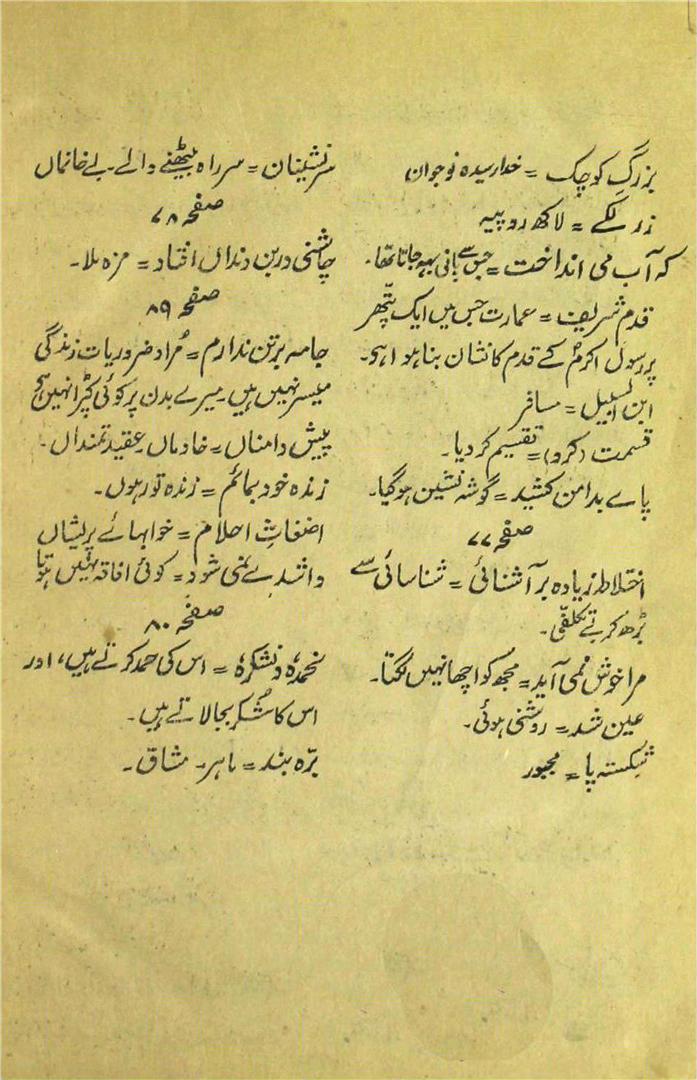 بزرگِ کوچک = خدا رسیدہ نوجوان
زر لکے = لاکھ روپیہ
کہ آب می انداخت = جس سے پانی بہہ جاتا تھا۔
قدم شریف = عمارت جس میں ایک پتّھر
پر رسول اکرمؐ کے قدم کا نشان بنا ہوا ہو۔
ابن السبیل = مسافر
قسمت (کرد) = تقسیم کر دیا۔
پاے بدامن کشید = گوشہ نشین ہو گیا۔
صفحہ ۷۷
اختلاط زیادہ بر آشنائی = شناسائی سے
بڑھ کر بے تکلّفی۔
مرا خوش نمی آید = مجھ کو اچھا نہیں لگتا۔
عین شد = روشنی ہوئی۔
شکستہ پا = مجبور
سرنشینان = سر راہ بیٹھنے والے۔ بے خانماں
صفحہ ۷۸
چاشنی در بن دنداں افتاد = مزہ ملا۔
صفحہ ۸۹
جامہ برتن ندارم = مُراد ضروریات زندگی
میسر نہیں ہیں۔ میرے بدن پر کوئی کپڑا نہیں ہے
پیش دامناں = خادماں عقیدتمنداں۔
زندہ خود بمانم = زندہ تو رہوں۔
اضغاثِ احلام = خوابہائے پریشاں
واشدے نمی شود = کوئی افاقہ نہیں ہوتا
صفحہ ۸۰
نحمدہٗ و نشکرہٗ = اس کی حمد کرتے ہیں، اور
اس کا شُکر بجا لاتے ہیں۔
برّہ بند = ماہر۔ مشاق۔